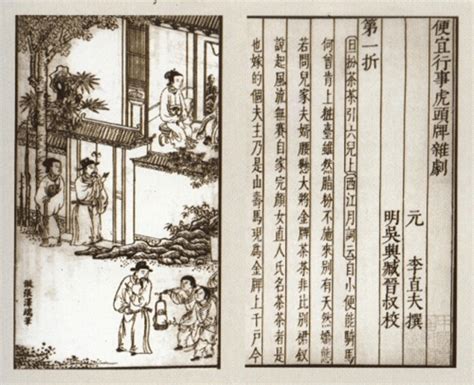 便宜行事虎頭牌雜劇
元 李直夫撰
明吳興臧晉叔校
第一折
旦扮茶茶引六兒上西江月詞云自小便能騎馬
何曾肯上粧臺雖然脂粉不施來別有天然嬌態
若問兒家夫婿腰懸大將金牌茶茶非比別裙釵
說起風流無賽自家完顏女直人氏名茶茶者是
也嫁的個夫主乃是山壽馬現為金牌上千戶今
倣張擇端筆